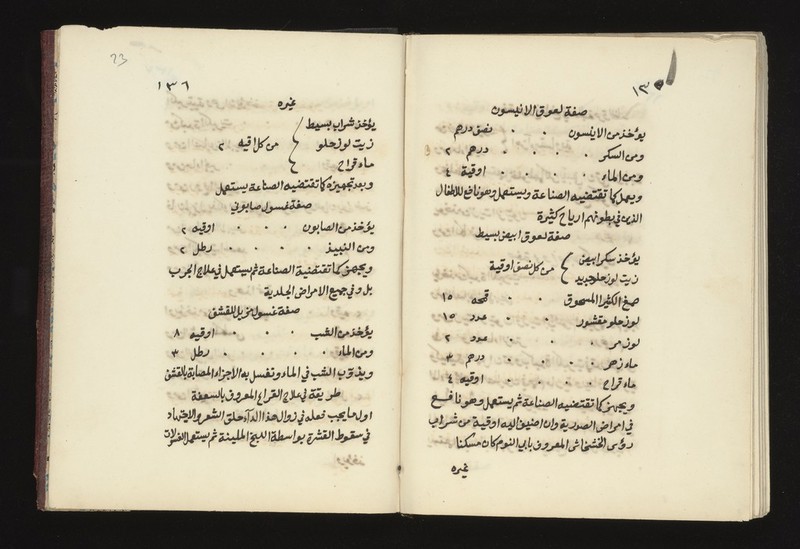 ١٣٥
صفة لعوق الانيسون
يؤخذ من الانيسون . . نصف درهم
ومن السكر . . . . درهم ٢
ومن الماء . . . . اوقية ٤
ويعمل كما تقتضيه الصناعة ويستعمل وهو نافع للاطفال
الذين في بطونهم ارياح كثيرة
صفة لعوق ابيض بسيط
يؤخذ سكر ابيض
زيت لوز حلو جديد } من كل نصف اوقية
صمغ الكثيرا المسحوق . . قمحه ١٥
لوز حلو مقشور . . عدد ١٥
لوز مر . . . . عدد ٢
ماء زهر . . . . درهم ٣
ماء قراح . . . . اوقية ٤
ويجهز كما تقتضيه الصناعة ثم يستعمل وهو نافع
في امراض الصدرية وان اضيف اليه اوقية من شراب
رؤس الخشخاش المعروف بابي النوم كان مسكنا
غيره
23
١٣٦
غيره
يؤخذ شراب بسيط
زيت لوز حلو } من كل اقيه ٢
ماء قراح
وبعد تجهيزه كما تقتضيه الصناعة يستعمل
صفة غسول صابوني
يؤخذ من الصابون . . . اوقيه ٢
ومن النبيذ . . . . رطل ٢
ويجهز كما تقتضية الصناعة ثم يستعمل في علاج الجرب
بل وفي جميع الامراض الجلدية
صفة غسول مزيل للقشف
يؤخذ من الشب . . . اوقيه ٨
ومن الماء . . . . رطل ٣
ويذوب الشب في الماء وتغسل به الاجزاء المصابة بالقشف
طريقة في علاج القراع المعروف بالسعفة
اول ما يجب فعله في زوال هذا الداء حلق الشعر والاجتهاد
في سقوط القشرة بواسطة اللبخ الملينة ثم يستعمل الغسولات